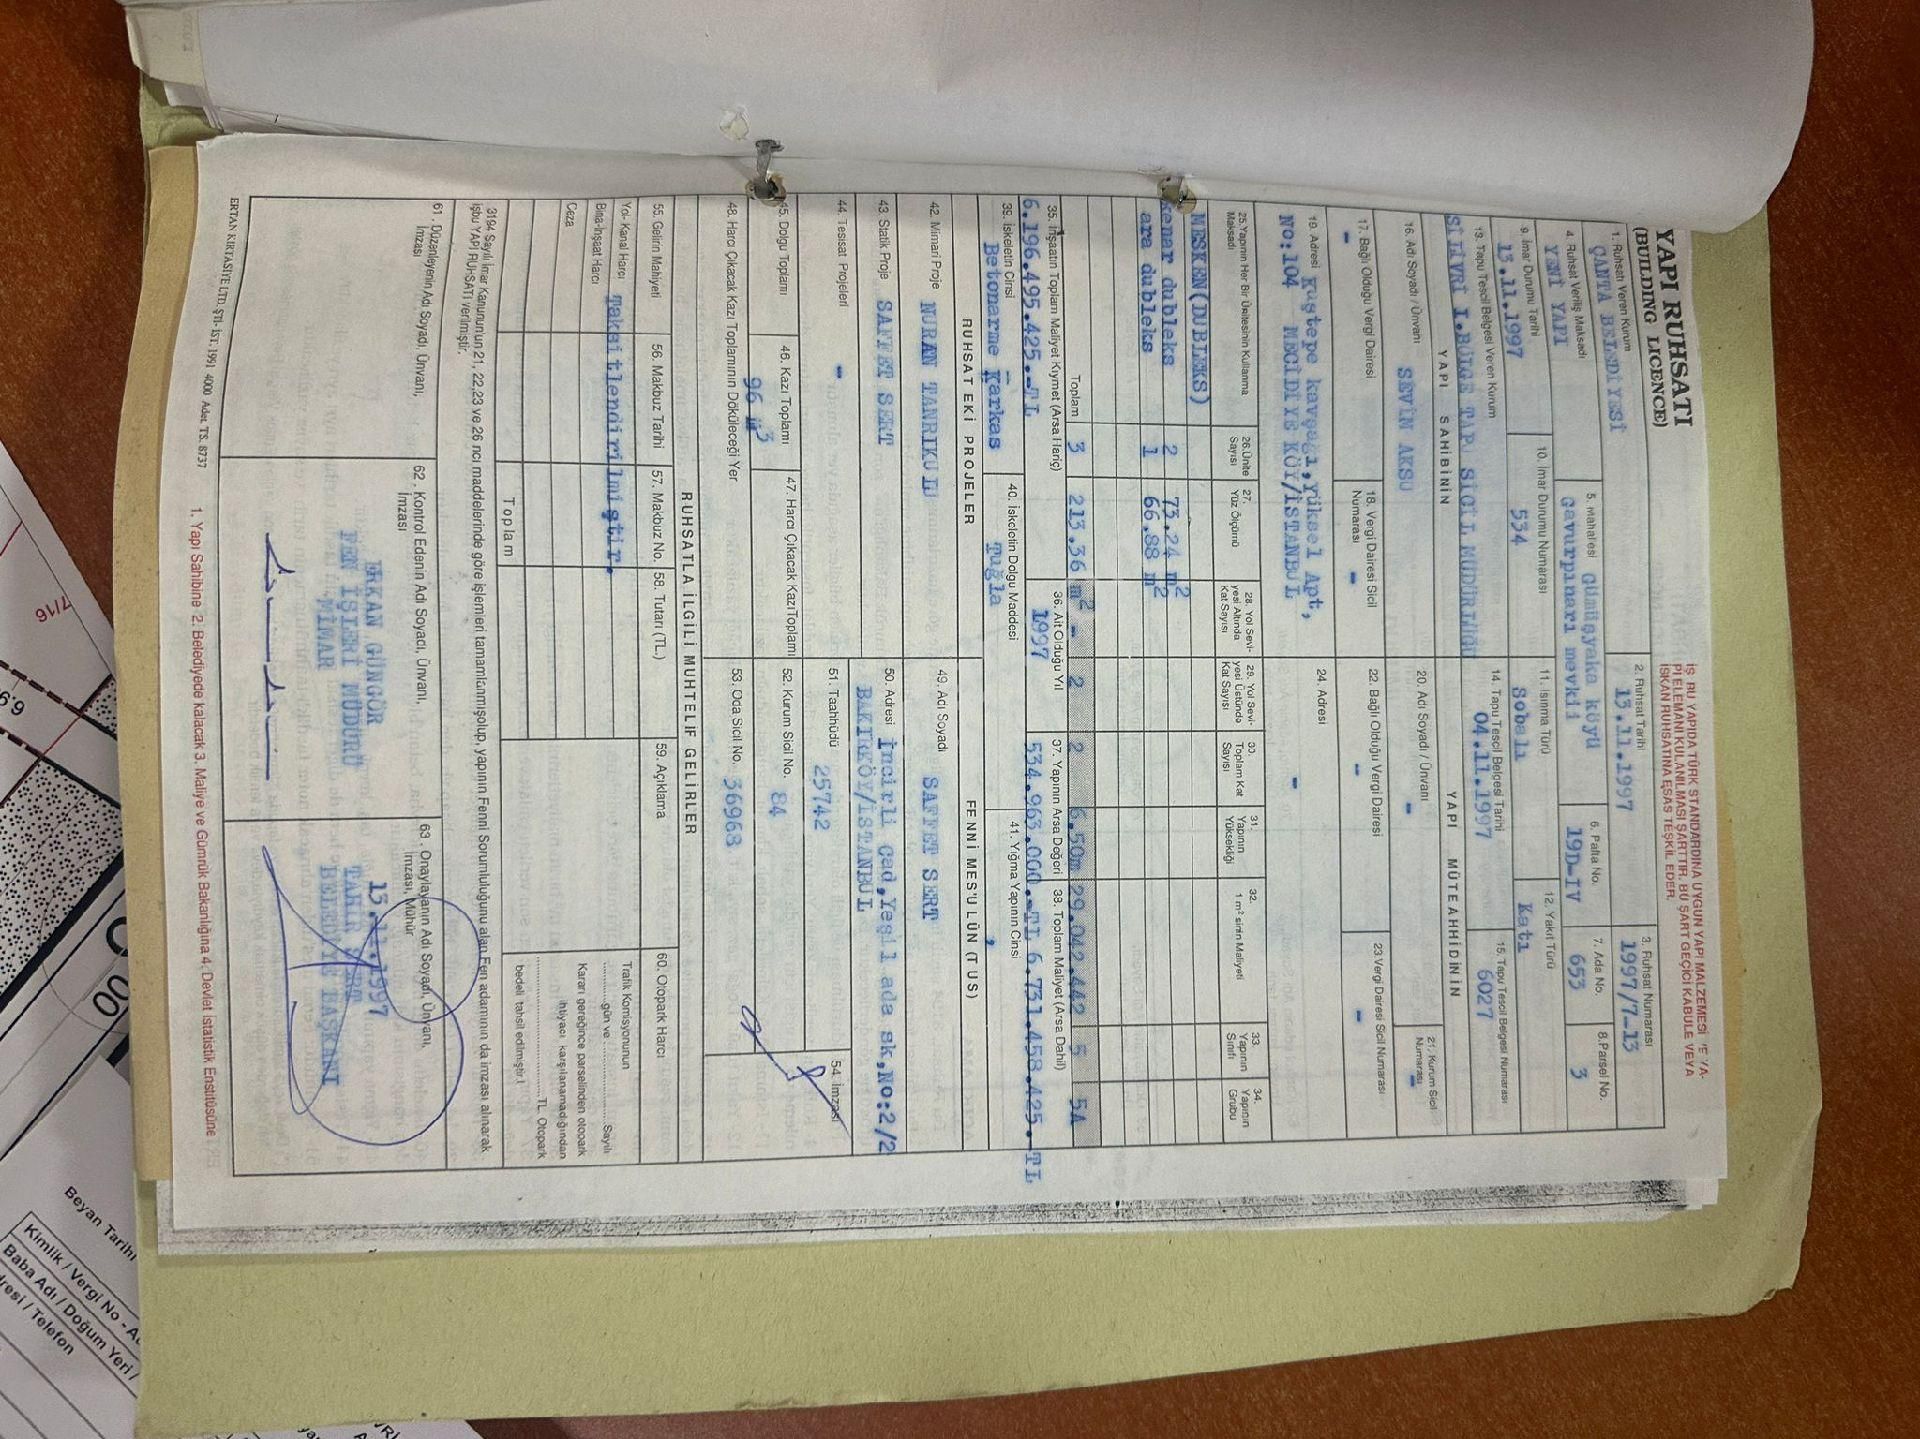 YAPI RUHSATI
(BUILDING LICENCE)
PI ELEMANI KULANILMASI ŞARTTIR. BU ŞART GEÇİCİ KABULE VEYA
İSKAN RUHSATINA ESAS TEŞKİL EDER.
1. Ruhsatı Veren Kurum
ÇANTA BELEDİYESİ
2. Ruhsat Tarihi
13.11.1997
3. Ruhsat Numarası
1997/7-13
4. Ruhsat Veriliş Maksadı
YENİ YAPI
5. Mahallesi Gümüşyaka köyü
Gavurpınarı mevkii
6. Pafta No.
19D-IV
7. Ada No.
653
8. Parsel No.
3
9. İmar Durumu Tarihi
13.11.1997
10. İmar Durumu Numarası
534
11. Isınma Türü
Sobalı
12. Yakıt Türü
Katı
13. Tapu Tescil Belgesi Veren Kurum
SİLİVRİ I.BÖLGE TAPU SİCİL MÜDÜRLÜĞÜ
14. Tapu Tescil Belgesi Tarihi
04.11.1997
15. Tapu Tescil Belgesi Numarası
6027
YAPI SAHİBİNİN
YAPI MÜTEAHHİDİNİN
16. Adı Soyadı / Ünvanı
SEVİM AKSU
20. Adı Soyadı / Ünvanı
-
21. Kurum Sicil
Numarası
-
17. Bağlı Olduğu Vergi Dairesi
-
18. Vergi Dairesi Sicil
Numarası
-
22. Bağlı Olduğu Vergi Dairesi
-
23. Vergi Dairesi Sicil Numarası
-
19. Adresi Kuştepe kavşağı, Yüksel Apt,
NO:104 MECİDİYE KÖY/İSTANBUL
24. Adresi
-
25. Yapının Her Bir Ünitesinin Kullanma
Maksadı
26. Ünite
Sayısı
27.
Yüz Ölçümü
28. Yol Sevi-
yesi Altında
Kat Sayısı
29. Yol Sevi-
yesi Üstünde
Kat Sayısı
30.
Toplam Kat
Sayısı
31.
Yapının
Yüksekliği
32.
1 m² sinin Maliyeti
33.
Yapının
Sınıfı
34.
Yapının
Grubu
MESKEN(DUBLEKS)
kenar dubleks 2 73.24 m2
ara dubleks 1 66.88 m2
Toplam 3 213.36 m2 - 2 2 6,50m 29.042.442 5 5A
35. İnşaatın Toplam Maliyet Kıymet (Arsa Hariç)
6.196.495.425.-TL
36. Ait Olduğu Yıl
1997
37. Yapının Arsa Değeri
534.963.000.-TL
38. Toplam Maliyet (Arsa Dahil)
6.731.458.425.-TL
39. İskeletin Cinsi
Betonarme Karkas
40. İskeletin Dolgu Maddesi
Tuğla
41. Yığma Yapının Cinsi
RUHSAT EKİ PROJELER
FENNİ MES'ULÜN (TUS)
42. Mimari Proje NURAN TANRIKULU
43. Statik Proje SAFFET SERT
44. Tesisat Projeleri -
49. Adı Soyadı SAFFET SERT
50. Adresi İncirli Cad, Yeşil ada sk, No:2/2
BAKIRKÖY/İSTANBUL
45. Dolgu Toplamı
46. Kazı Toplamı
96 m3
47. Harcı Çıkacak Kazı Toplamı
48. Harcı Çıkacak Kazı Toplamının Döküleceği Yer
51. Taahhüdü 25742
52. Kurum Sicil No. 84
53. Oda Sicil No. 36968
54. İmzası
RUHSATLA İLGİLİ MUHTELİF GELİRLER
55. Gelirin Mahiyeti
56. Makbuz Tarihi
57. Makbuz No.
58. Tutarı (TL.)
59. Açıklama
60. Otopark Harcı
Yol-Kanal Harcı
Taksitlendirilmiştir.
Bina-İnşaat Harcı
Ceza
Toplam
Trafik Komisyonunun
............gün ve ............Sayılı
Kararı gereğince parselinden otopark
ihtiyacı karşılanamadığından
............TL Otopark
bedeli tahsil edilmiştir.
3194 Sayılı İmar Kanununun 21, 22,23 ve 26 ncı maddelerinde göre işlemleri tamamlanmış olup, yapının Fenni Sorumluluğunu alan Fen adamının da imzası alınarak
işbu YAPI RUHSATI verilmiştir.
61. Düzenleyenin Adı, Soyadı, Ünvanı,
İmzası
62. Kontrol Edenin Adı Soyadı, Ünvanı,
İmzası
ERKAN GÜNGÖR
FEN İŞLERİ MÜDÜRÜ
MİMAR
63. Onaylayanın Adı Soyadı, Ünvanı,
İmzası, Mühür
13.11.1997
TAHİR SERT
BELEDİYE BAŞKANI
ERTAN KIRTASİYE LTD. ŞTİ- İST. 1991 4000 Adet. TS. 8737
1. Yapı Sahibine 2. Belediyede kalacak 3. Maliye ve Gümrük Bakanlığına 4. Devlet İstatistik Enstitüsüne
7/16
6.9
00
Beyan Tarihi
Kimlik / Vergi No
Baba Adı / Doğum Yeri /
resi / Telefon